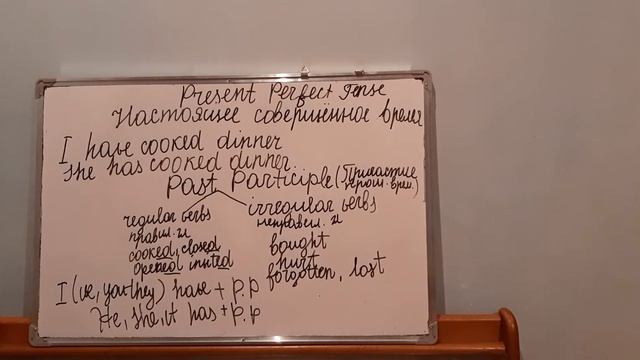 Present Perfect Tense
Настоящее совершённое время
I have cooked dinner
She has cooked dinner.
Past Participle (Причастие прош. врем.)
regular verbs
правил. гл
cooked, closed
opened invited
irregular verbs
неправил. гл
bought
hurt
forgotten, lost
I (we, you, they) have + p.p
He, she, it has + p.p